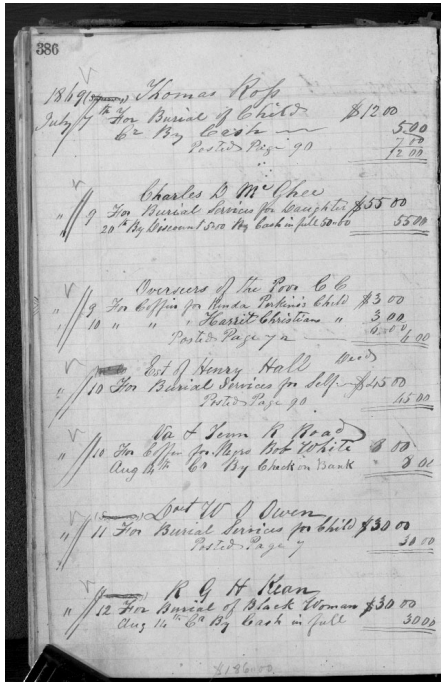 386
1869 Thomas Ross
July 7th For Burial of Child $12 00
Cr By Cash 5.00
7 00
Posted Page 90 12 00
Charles D McGhee
" 9 For Burial Services for Daughter $55 00
20th By Discount 5.00 By Cash in full 50.00 55 00
Overseers of the Poor C C
" 9 For Coffin for Rinda Perkins Child $3 00
" 10 " " " Harrit Christians " 3 00
6.00
Posted Page 72 6 00
Est of Henry Hall
" 10 For Burial Services for Self $45 00
Posted Page 90 45 00
Va & Tenn R Road
" 10 For Coffin for Negro Bob White 8 00
Aug 14th Cr By Check on Bank 8 00
W O Owen
" 11 For Burial Services for Child $30 00
Posted Page 7 30 00
R G H Kean
" 12 For Burial of Black Woman $30 00
Aug 14th Cr By Cash in full 30 00
$186.00